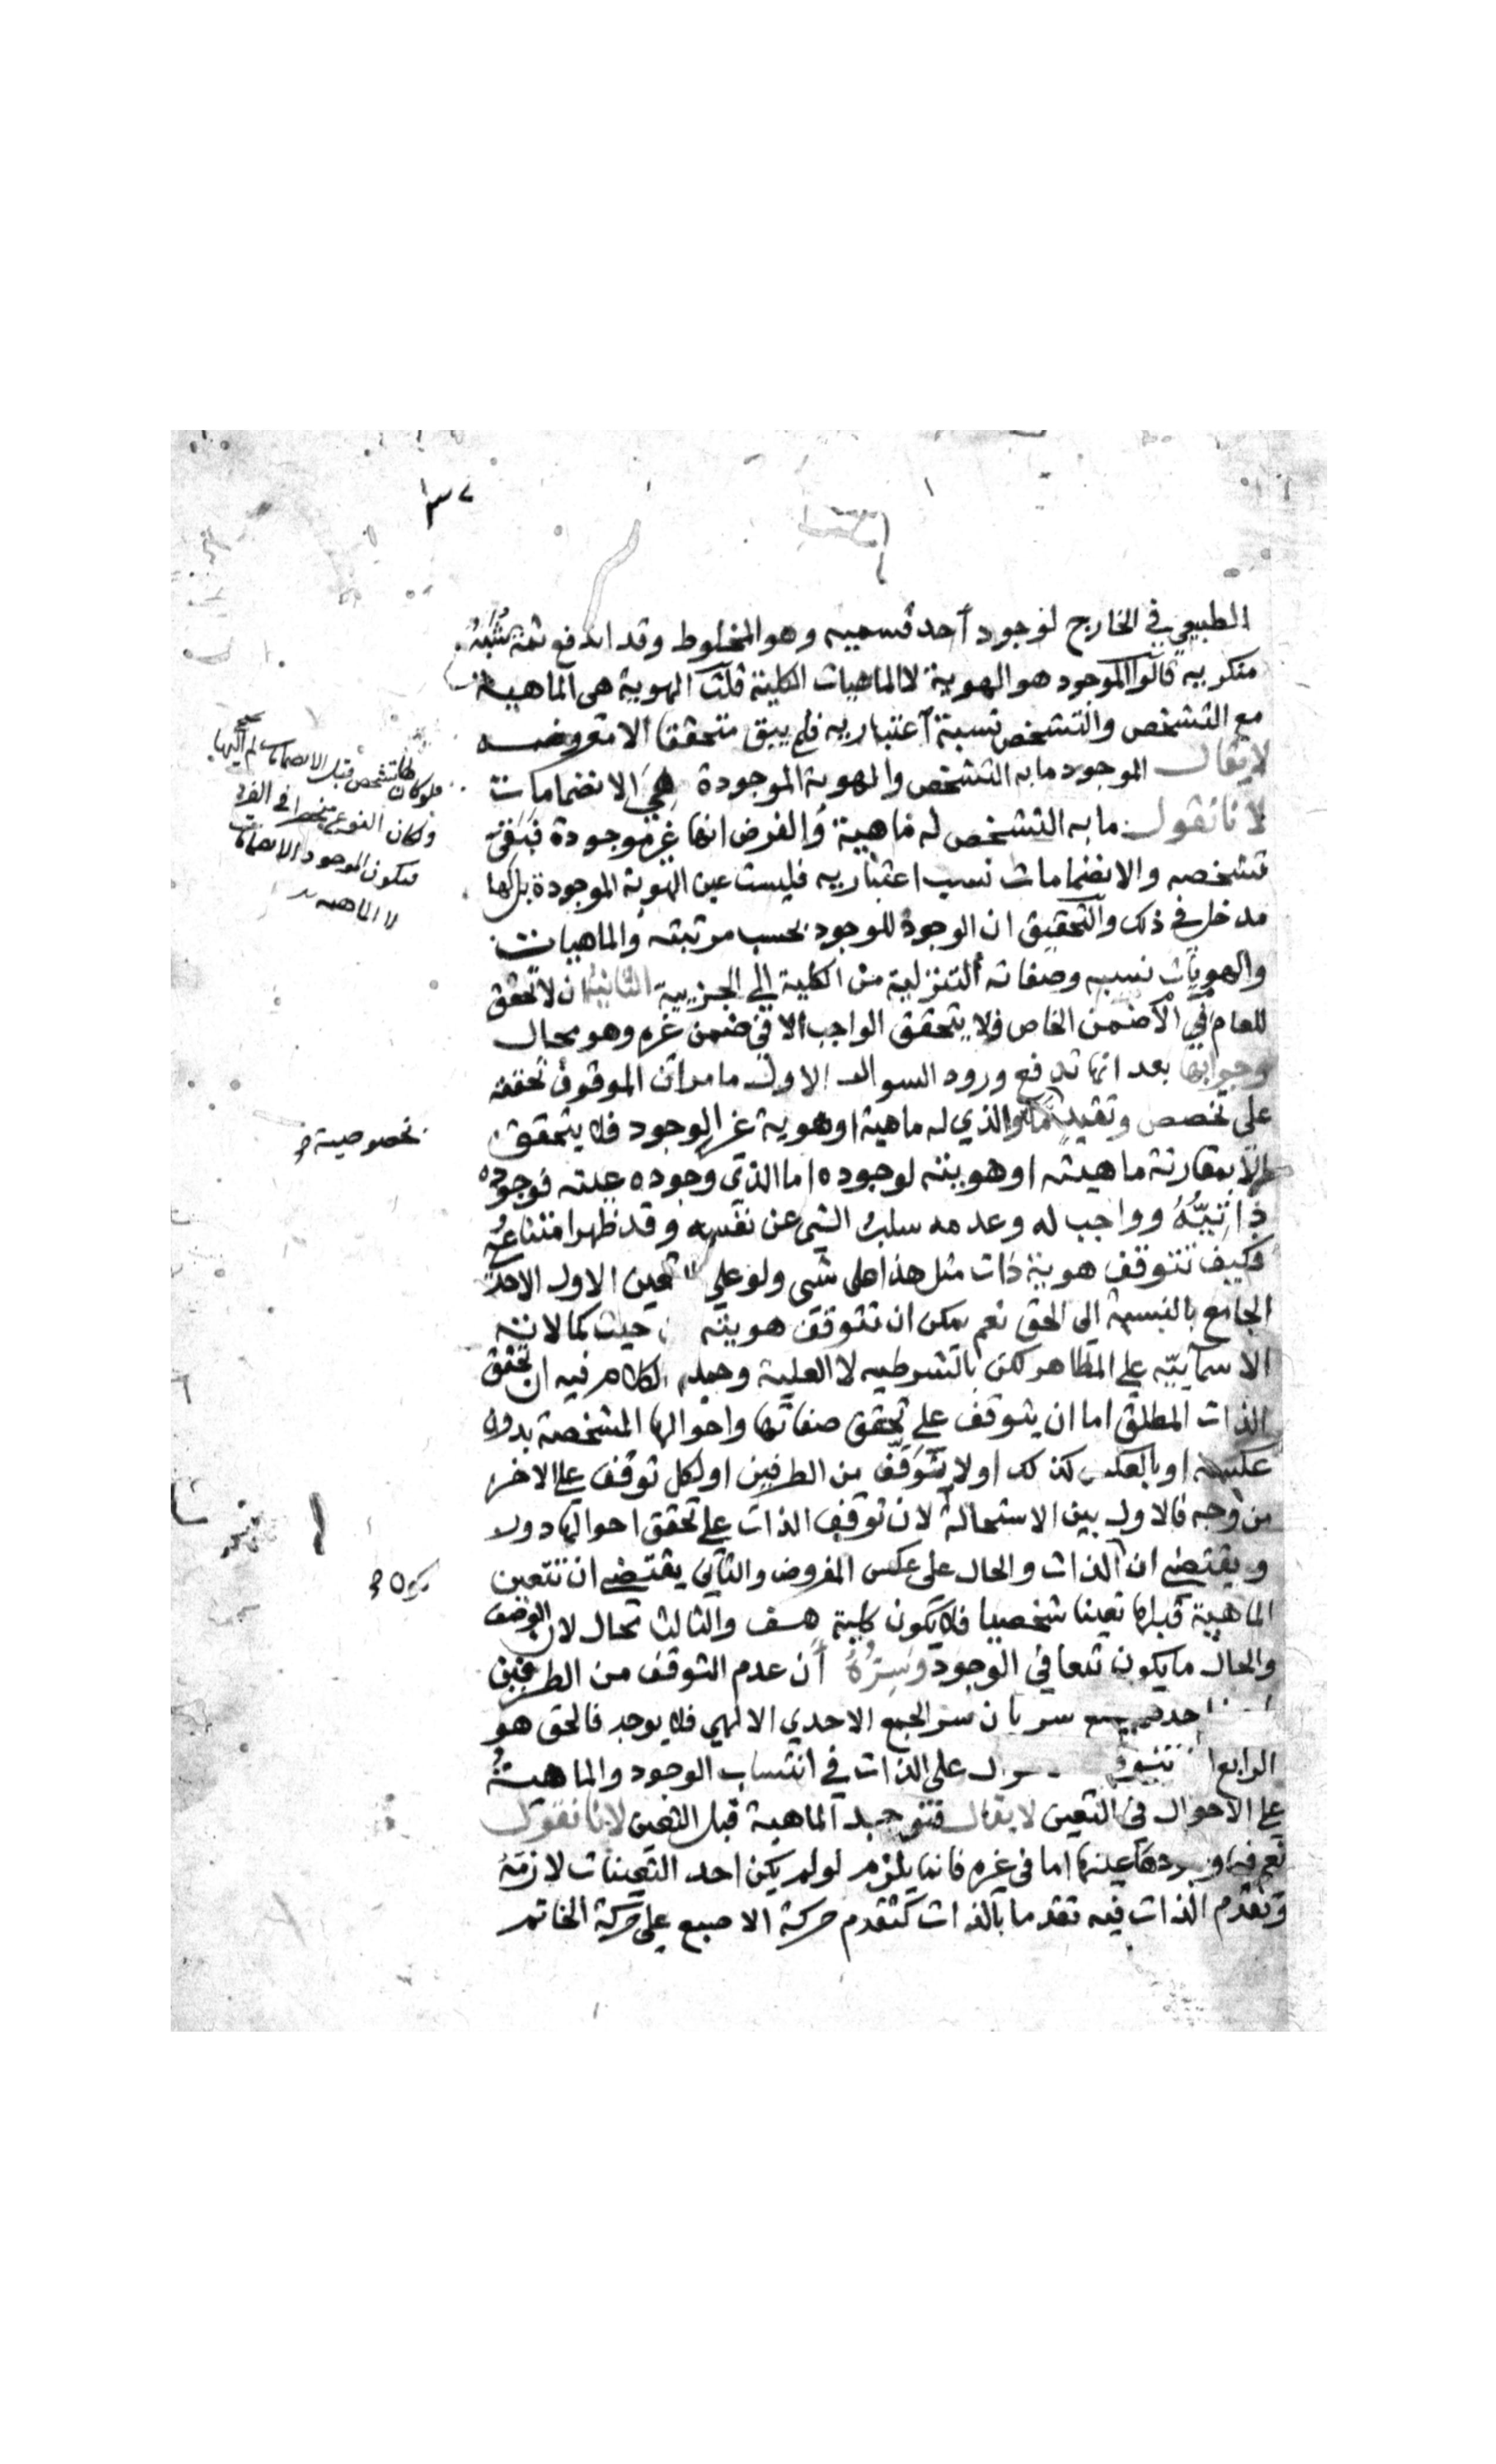 ٣٧
الطبيعي في الخارج لوجود أحد قسميه وهو المخلوط وقد اندفع ثمة شبه
منكريه قالوا الموجود هو الهوية لا الماهيات الكلية قلت الهوية هي الماهية
مع التشخص والتشخص نسبة اعتباريه فلم يبق متحققا الا معروضه
لا يقال الموجود ما به التشخص والهوية الموجودة هي الانضمامات
لانا نقول ما به التشخص له ماهية والفرض انها غير موجودة فبقي
تشخصه والانضمامات نسب اعتباريه فليست عين الهوية الموجودة بل لها
مدخل في ذلك والتحقيق ان الوجود للموجود بحسب مرتبته والماهيات
والهويات نسبه وصفاته التنزلية من الكلية الي الجزيية الثانية ان لا تحقق
للعام الا في ضمن الخاص فلا يتحقق الواجب الا في ضمن غيره وهو محال
وجوابها بعد انها تدفع ورود السوال الاول ما مر ان الموقوف تحققه
علي تخصص وتقيد ما والذي له ماهية او هوية غير الوجود فلا يتحقق
الا بمقارنة ماهيته او هويته لوجوده اما الذي وجوده عينه فوجوده
ذاتيه وواجب له وعدمه سلب الشي عن نفسه وقد ظهر امتناعه
فكيف تتوقف هوية ذات مثل هذا علي شي ولو علي تعين الاول الاحدي
الجامع بالنسبة الي الحق نعم يمكن ان تتوقف هويته حيث كمالاته
الاسماييه علي المظاهر لكن بالشرطيه لا العلية وجملة الكلام فيه ان تحقق
الذات المطلق اما ان يتوقف علي تحقق صفاتها واحوالها المشخصة بدون
عكسه او بالعكس كذلك او لا يتوقف من الطرفين او لكل توقف علي الاخر
من وجه فالاول بين الاستحالة لان توقف الذات علي تحقق احوالها دورد
ويقتضي ان الذات والحال علي عكس المفروض والثاني يقتضي ان تتعين
الماهية قبلها تعينا شخصيا فلا يكون كلية هف والثالث محال لان الوصف
والحال ما يكون تبعا في الوجود وسره أن عدم التوقف من الطرفين
سريان سر الجمع الاحدي الالهي فلا يوجد فالحق هو
الرابع علي الذات في انتساب الوجود والماهية
علي الاحوال في التعين لا يقال فتوجد الماهية قبل التعين لانا نقول
نعم فيما وجودها عينها اما في غيره فانما يلزم لو لم يكن احد التعينات لازمة
وتقدم الذات فيه تقدما بالذات كتقدم حركة الاصبع علي حركة الخاتم
فلو كان لها تشخص قبل الانضمامات لم
ولكان النوع منحصرا في الفرد
فيكون الموجود الانضمامات
لا الماهيه
بخصوصية